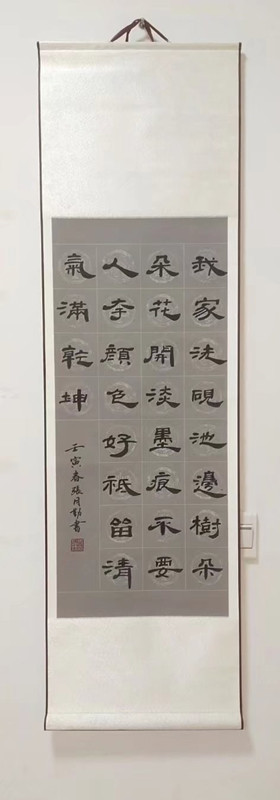 我家洗硯池邊樹朵
朵花開淡墨痕不要
人夸顔色好祗留清
氣滿乾坤
壬寅春張月勤書